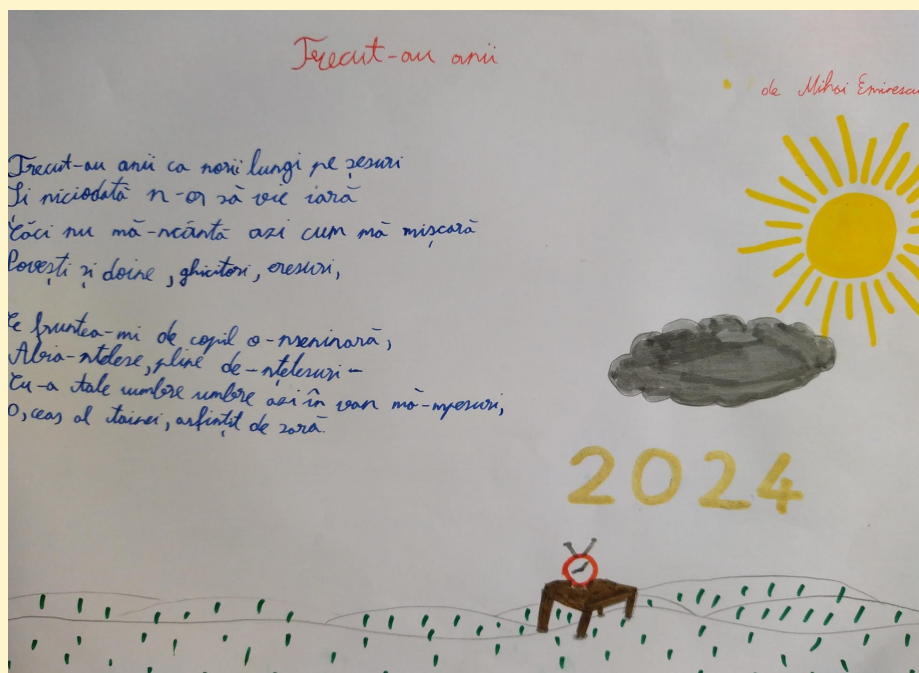 Trecut-au anii
de Mihai Eminescu
Trecut-au anii ca norii lungi pe șesuri
Și niciodată n-or să vie iară
Căci nu mă-ncântă azi cum mă mișcară
Povești și doine, ghicitori, eresuri,
Ce fruntea-mi de copil o-nseninară,
Abia-nțelese, pline de-nțelesuri -
Cu-a tale umbre umbre azi în van mă-mpesuri,
O, ceas al tainei, asfințit de sară.
2024